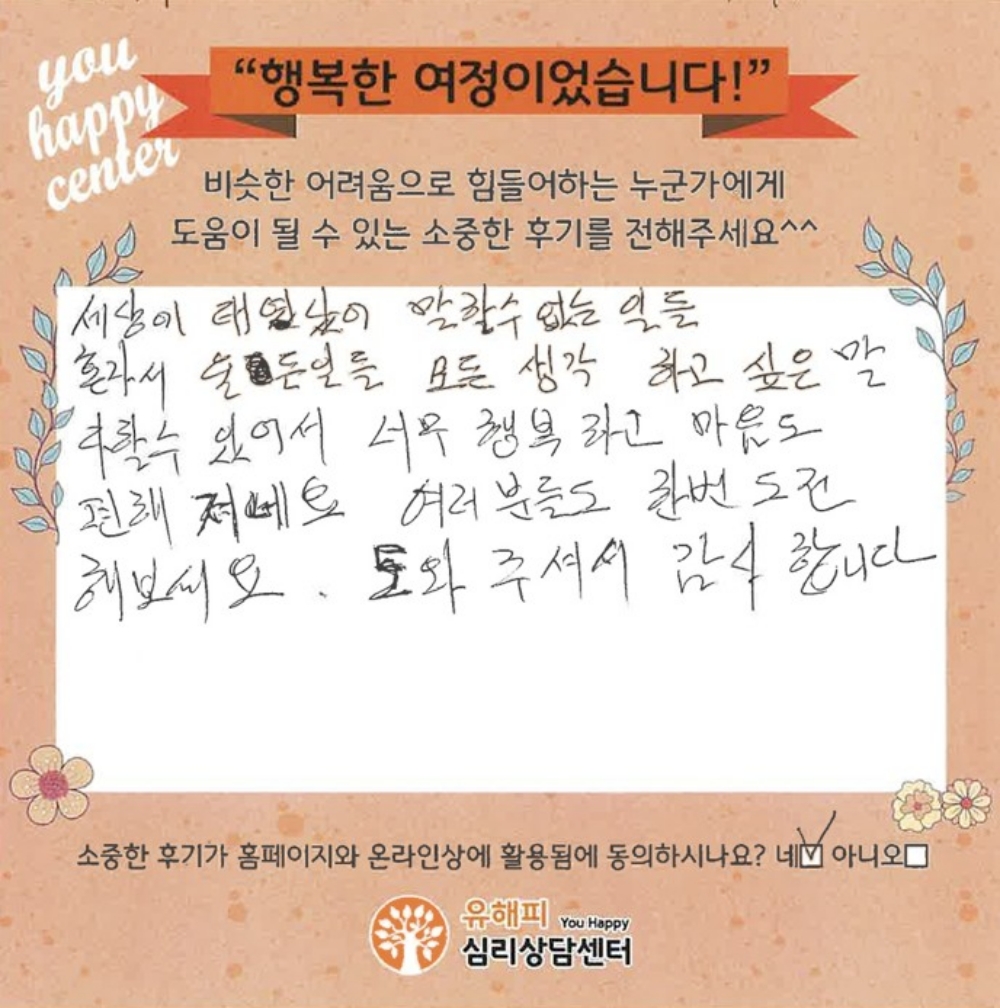 you
happy
center
“행복한 여정이었습니다!”
비슷한 어려움으로 힘들어하는 누군가에게
도움이 될 수 있는 소중한 후기를 전해주세요^^
세상이 태연남이 말할수 없는 일들
혼자서 든일들 모든 생각 하고 싶은 말
다할수 있어서 너무 행복 하고 마음도
편해 저네요 여러분들도 한번 도전
해보세요. 도와 주셔서 감사 합니다
소중한 후기가 홈페이지와 온라인상에 활용됨에 동의하시나요? 네 아니오
유해피 You Happy
심리상담센터